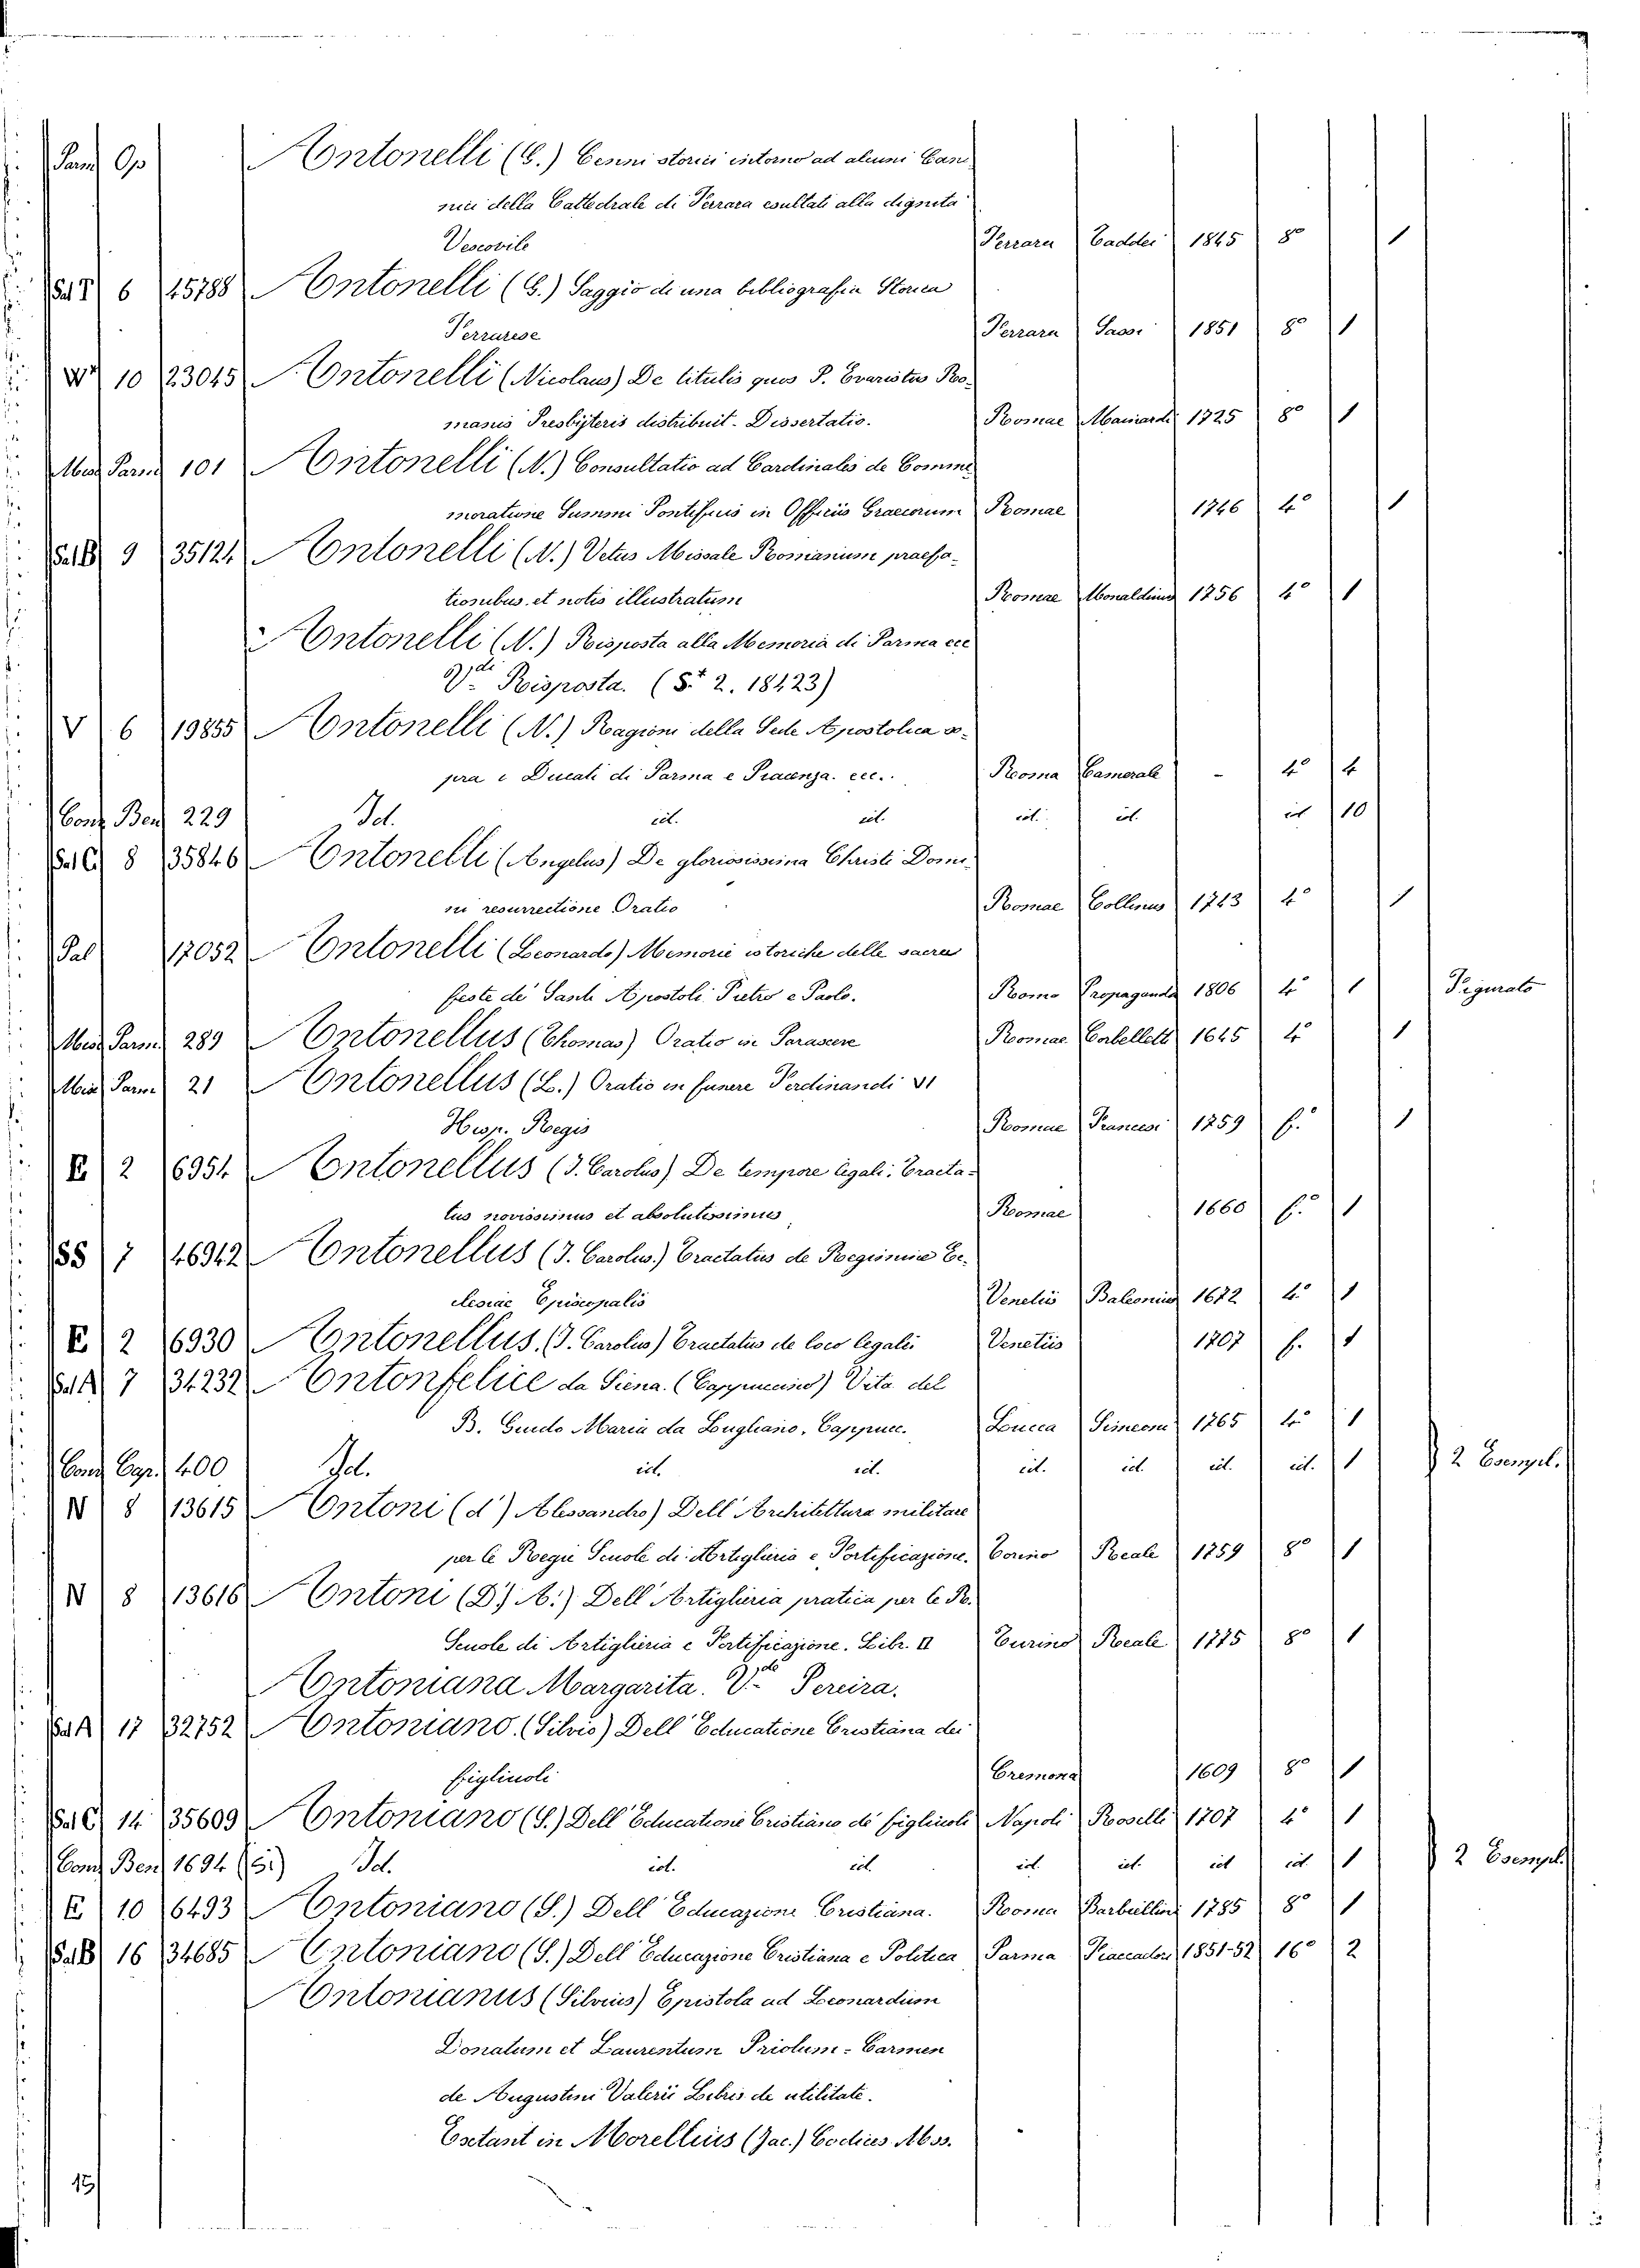 Parm Op Antonelli (G.) Cenni storici intorno ad alcuni Cano-
nici della Cattedrale di Ferrara esultati alla dignità
Vescovile Ferrara Taddei 1845 8° 1
Sal T 6 45788 Antonelli (G.) Saggio di una bibliografia Storica
Ferrarese Ferrara Sassi 1851 8° 1
10 23045 Antonelli (Nicolaus) De titulis quos S. Evaristus Ro-
manis Presbyteris distribuit. Dissertatio. Romae Mainardi 1725 8° 1
Misc Parm 101 Antonelli (N.) Consultatio ad Cardinales de Comme
moratione Summi Pontificis in Officiis Graecorum Romae 1746 4° 1
Sal B 9 35124 Antonelli (N.) Vetus Missale Romanum praefa-
tionibus, et notis illustratum Romae Monaldinus 1756 4° 1
Antonelli (N.) Risposta alla Memoria di Parma ecc
V.di Risposta. (S.t 2. 18423)
V 6 19855 Antonelli (N.) Ragioni della Sede Apostolica so-
pra i Ducati di Parma e Piacenza. ecc. Roma Camerale - 4° 4
Cont Ben 229 Id. id. id. id. id. id 10
Sal C 8 35846 Antonelli (Angelus) De gloriosissima Christi Domi-
ni resurrectione Oratio Romae Collinus 1743 4° 1
Sal 17052 Antonelli (Leonardo) Memorie istoriche delle sacre
feste de' Santi Apostoli Pietro e Paolo. Roma Propaganda 1806 4° 1 Figurato
Misc Parm 289 Antonellus (Thomas) Oratio in Parasceve Romae Corbelletti 1645 4° 1
Misc Parm 21 Antonellus (L.) Oratio in funere Ferdinandi VI
Hisp. Regis Romae Francesi 1759 f.° 1
E 2 6954 Antonellus (J. Carolus) De tempore legali. Tracta-
tus novissimus et absolutissimus Romae 1660 f.° 1
SS 7 46942 Antonellus (J. Carolus.) Tractatus de Regimine Ec-
clesiae Episcopalis Venetiis Baleonius 1672 4° 1
E 2 6930 Antonellus. (J. Carolus) Tractatus de loco legali Venetiis 1707 f. 1
Sal A 7 34232 Antonfelice da Siena. (Cappuccino) Vita del
B. Guido Maria da Lugliano, Cappucc. Lucca Simeoni 1765 4° 1
Cont Cap. 400 Id. id. id. id. id. id. id. 1 2 Esempl.
N 8 13615 Antoni (d') Alessandro) Dell' Architettura militare
per le Regie Scuole di Artiglieria e Fortificazione. Torino Reale 1759 8° 1
N 8 13616 Antoni (D') A.) Dell' Artiglieria pratica per le R.
Scuole di Artiglieria e Fortificazione. Libr. II Turino Reale 1775 8° 1
Antoniana Margarita. V.de Pereira.
Sal A 17 32752 Antoniano. (Silvio) Dell' Educatione Cristiana dei
figliuoli Cremona 1609 8° 1
Sal C 14 35609 Antoniano (S.) Dell' Educatione Cristiana de figliuoli Napoli Roselli 1707 4° 1
Cont Ben 1694 Id. id. id. id. id. id id. 1 2 Esempl.
E 10 6493 Antoniano (S.) Dell' Educazione Cristiana. Roma Barbiellini 1785 8° 1
Sal B 16 34685 Antoniano (S.) Dell' Educazione Cristiana e Politica Parma Fiaccadori 1851-52 16° 2
Antonianus (Silvius) Epistola ad Leonardum
Donatum et Laurentum Priolum - Carmen
de Augustini Valerii Libris de utilitate.
Exstant in Morellius (Jac.) Codices Mss.